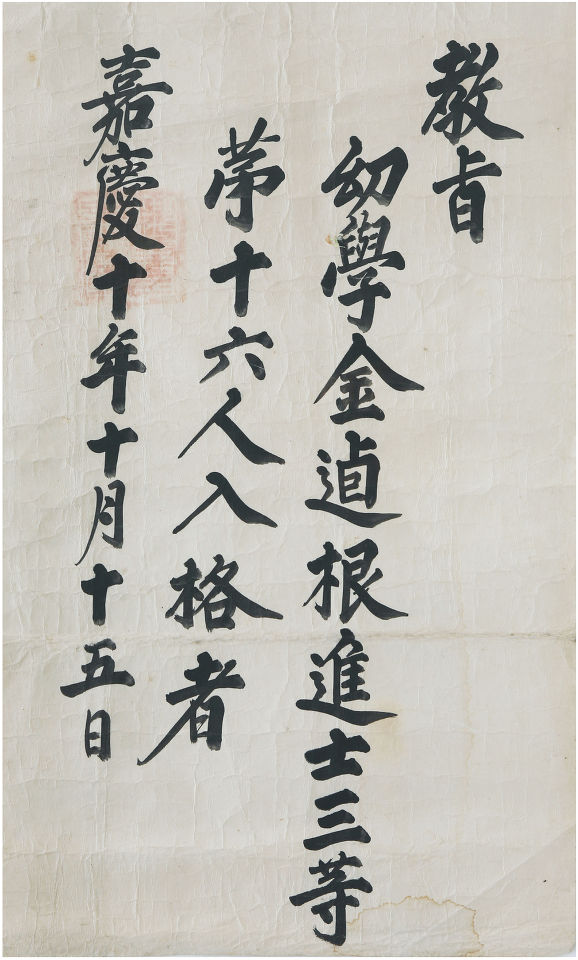 敎旨
幼學金逌根進士三等
苐十六人入格者
嘉慶十年十月十五日